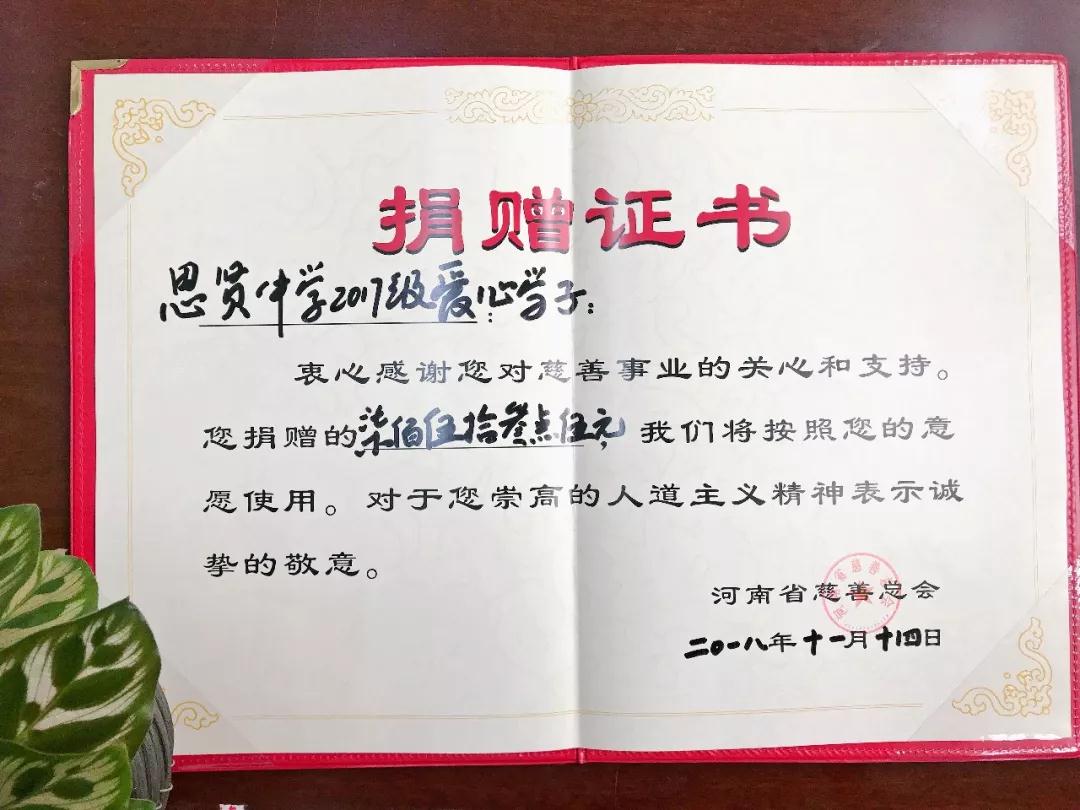 捐赠证书
思贤中学2017级爱心学子：
衷心感谢您对慈善事业的关心和支持。
您捐赠的柒佰伍拾叁点伍元，我们将按照您的意
愿使用。对于您崇高的人道主义精神表示诚
挚的敬意。
河南省慈善总会
二〇一八年十一月十四日